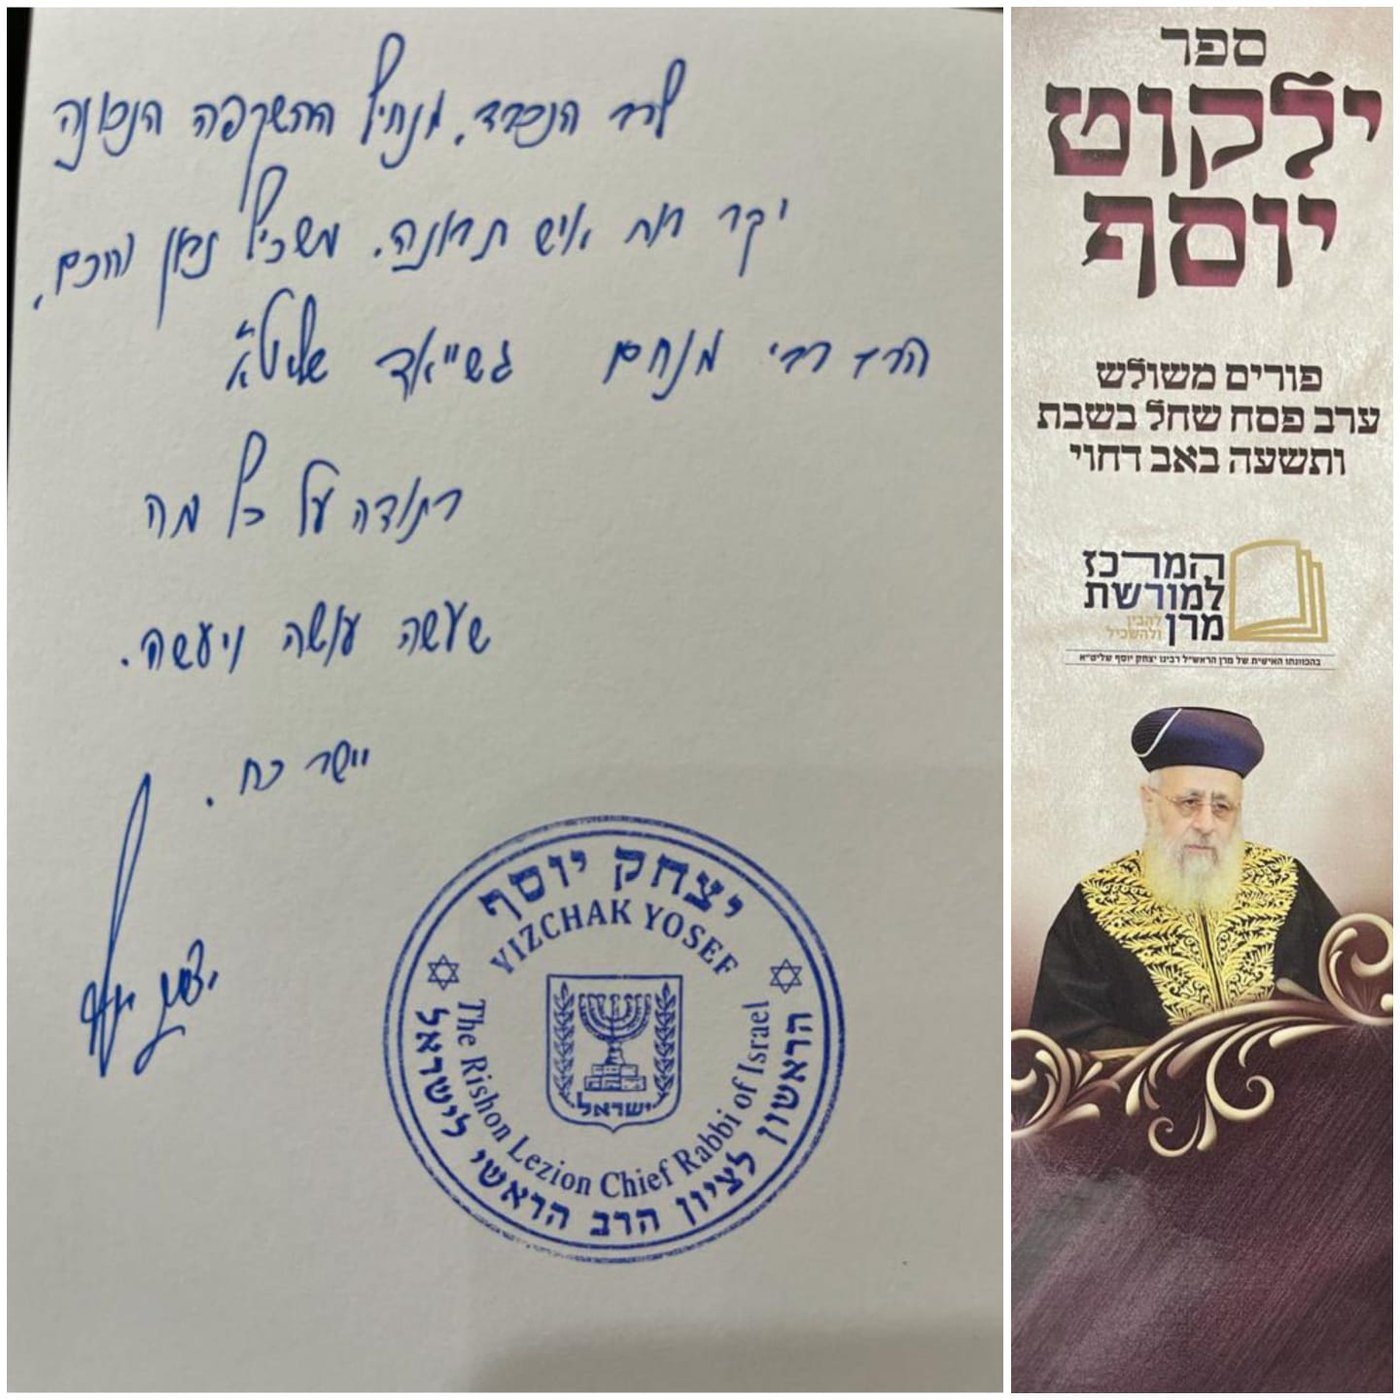 לרב הנכבד, מנחיל ההשקפה הנכונה
יקר רוח איש תבונה. משכיל נבון וחכם,
הרב רבי מנחם גשייד שליט"א
בתודה על כל מה
שעשה עושה ויעשה.
יישר כח.
יצחק יוסף
יצחק יוסף
YIZCHAK YOSEF
The Rishon Lezion Chief Rabbi of Israel
הראשון לציון הרב הראשי לישראל
ישראל
ספר
ילקוט
יוסף
פורים משולש
ערב פסח שחל בשבת
ותשעה באב דחוי
המרכז
למורשת
מרן להבין
ולהשכיל
בהכוונתו האישית של מרן הראש"ל רבינו יצחק יוסף שליט"א